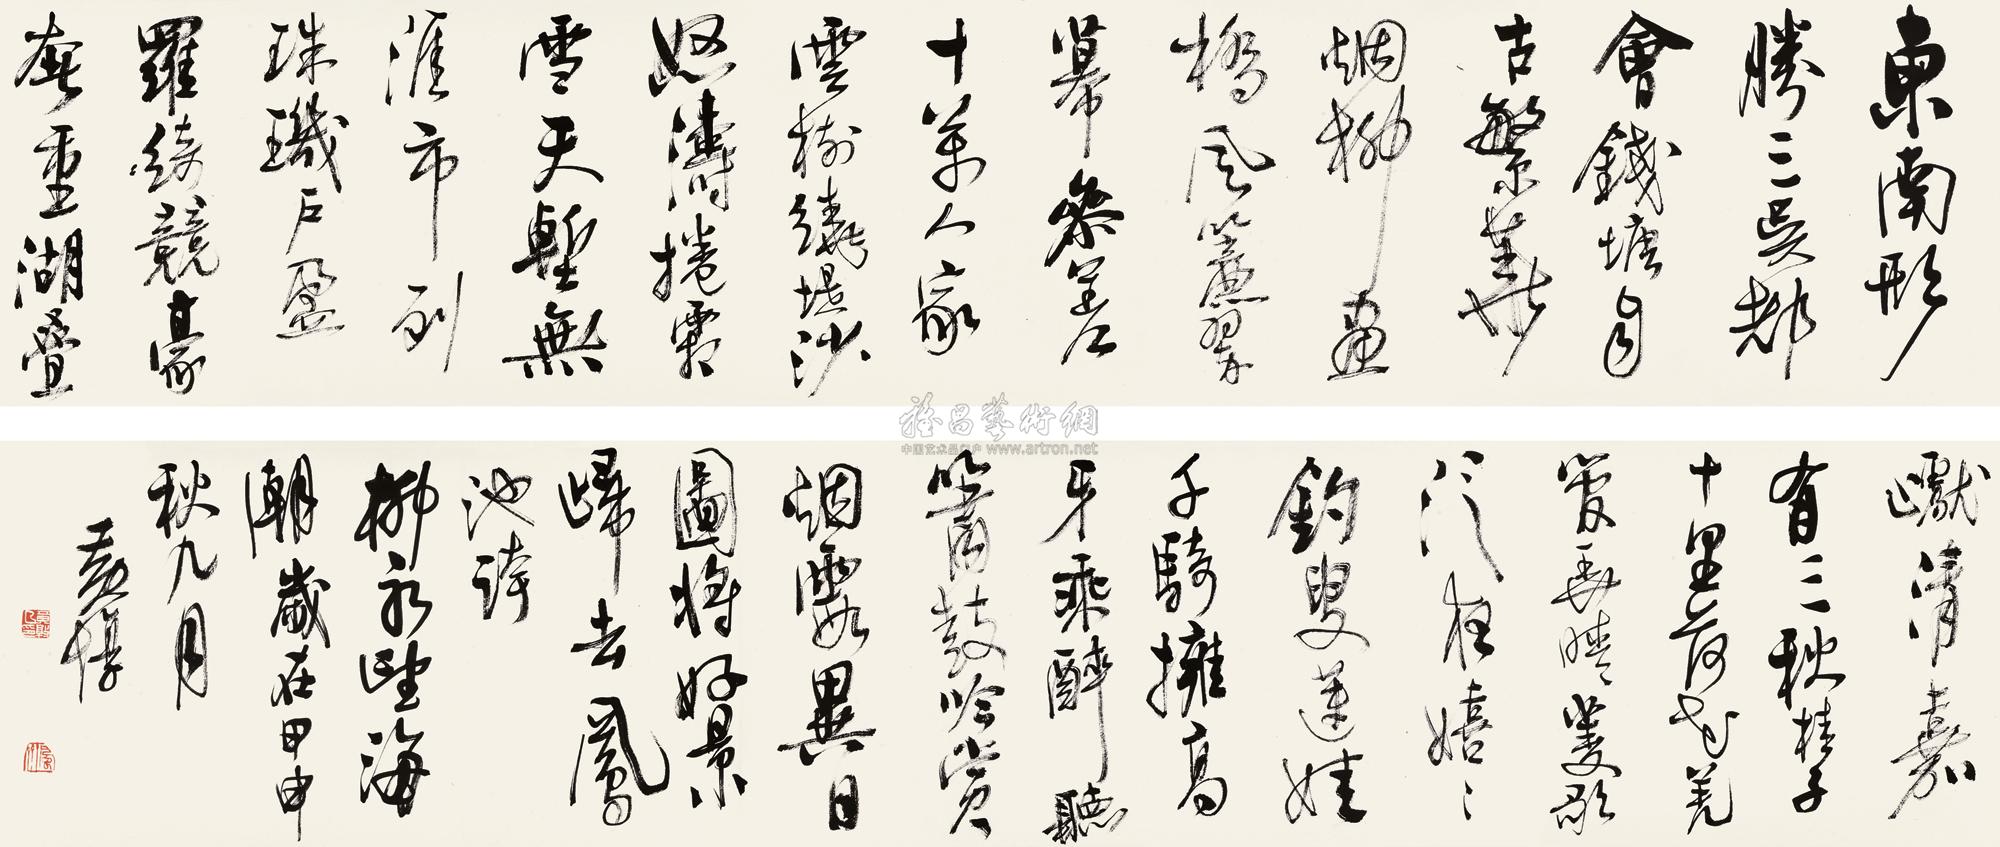 東南形
勝三吳都
會錢塘自
古繁華
烟柳畫
橋風簾翠
幕參差
十萬人家
雲樹繞堤沙
怒濤捲霜
雪天塹無
涯市列
珠璣戶盈
羅綺競豪
奢重湖疊
巘清嘉
有三秋桂子
十里荷花羌
管弄晴菱歌
泛夜嬉〻
釣叟蓮娃
千騎擁高
牙乘醉聽
簫鼓吟賞
烟霞異日
圖將好景
歸去鳳
池誇
柳永望海
潮歲在甲申
秋九月
黃惇
雅昌藝術網
中国艺术品门户 www.artron.net